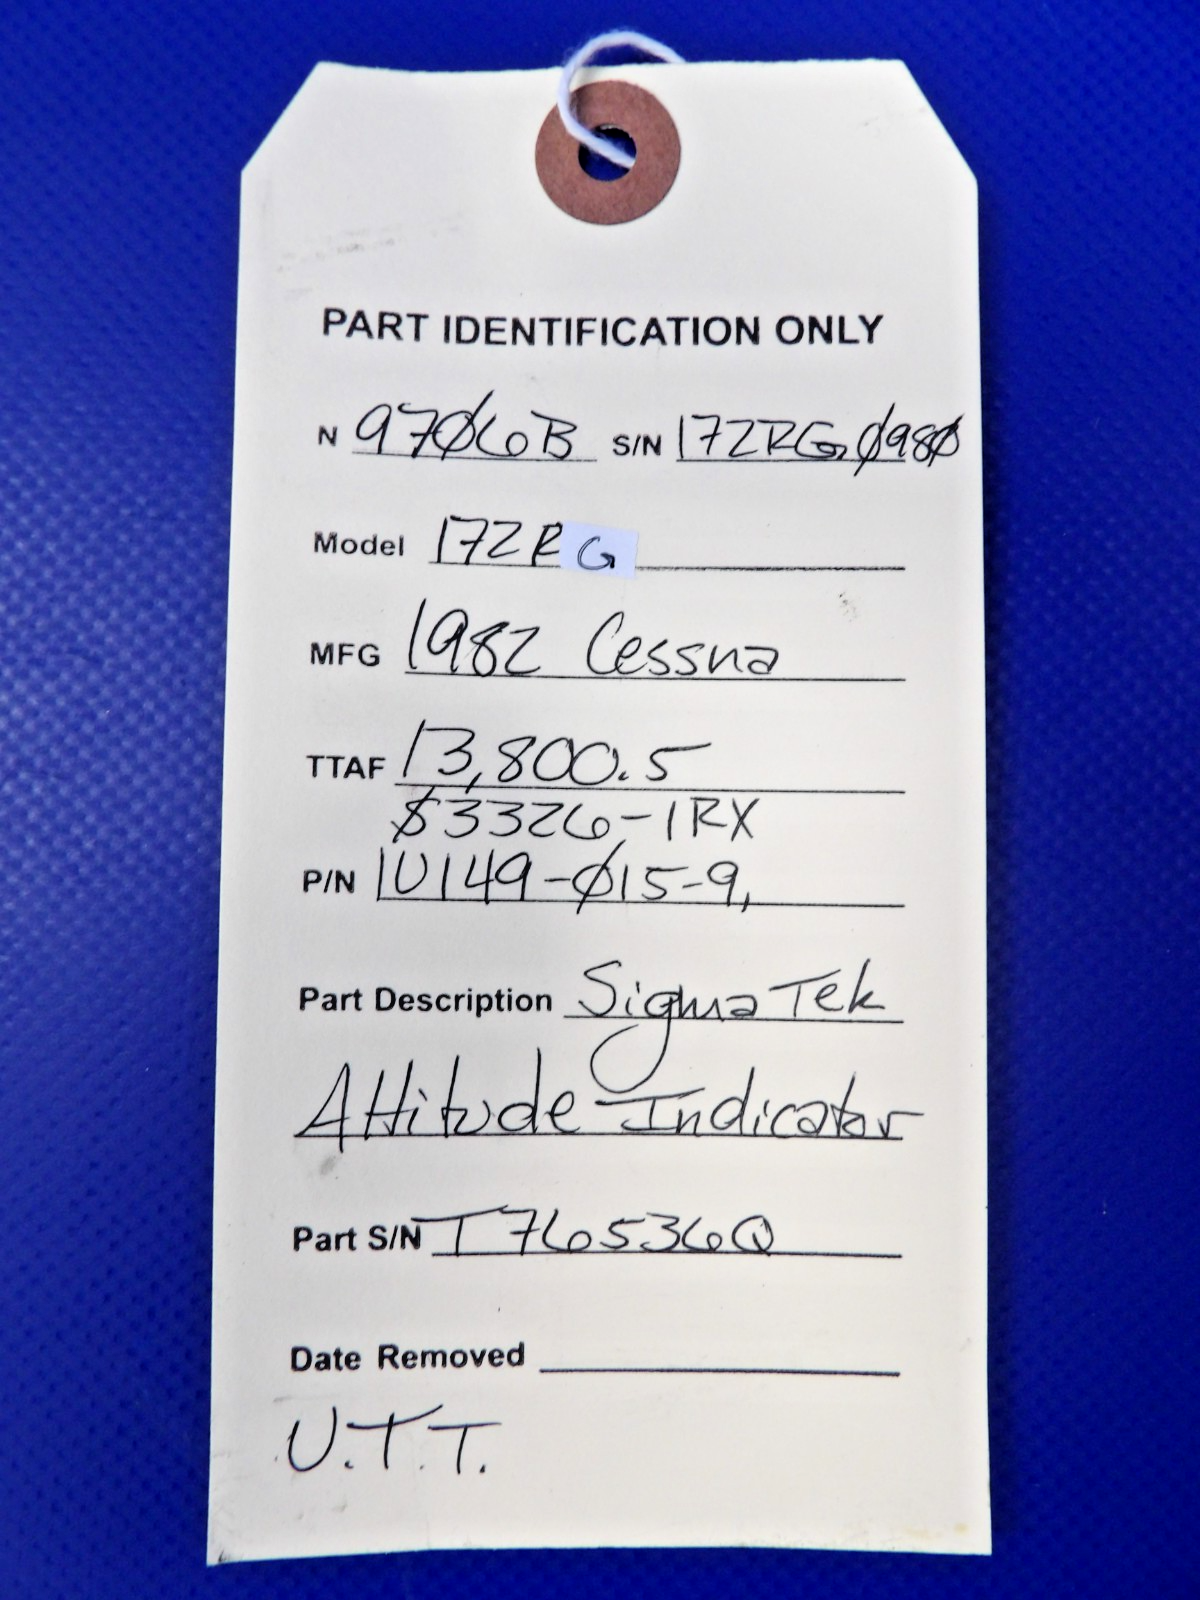 PART IDENTIFICATION ONLY
N 9706B S/N 172RG0980
Model 172RG
MFG 1982 Cessna
TTAF 13,800.5
S3326-1RX
P/N 1U149-015-9,
Part Description SigmaTek
Attitude Indicator
Part S/N T76536Q
Date Removed
U.T.T.